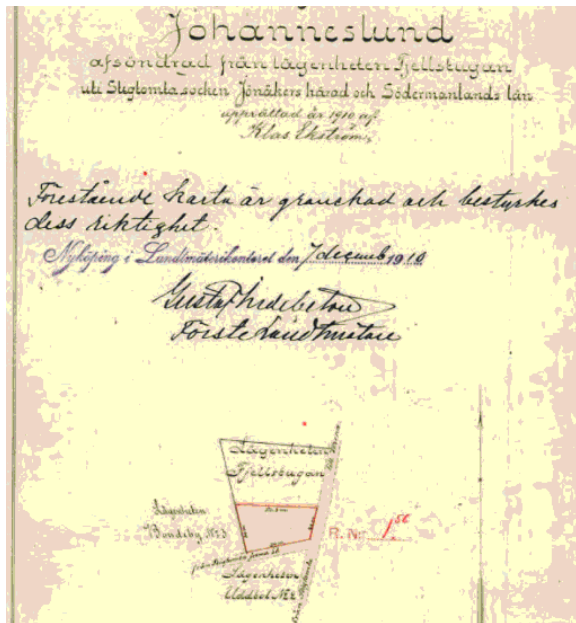 Johanneslund
afsöndrad från lägenheten Fjellstugan
uti Stigtomta socken Jönåkers härad och Södermanlands län
upprättad år 1910 af
Klas Ekström
Förestående karta är granskad och bestyrkes
dess riktighet.
Nyköping i Landtmäterikontoret den 7 decemb 1910
Gustaf
Förste Landtmätare
Lägenheten
Fjellstugan
Lägenheten
Bondeby № 3
R. N:o 1 50
från
Lägenheten
Uddbol № 2